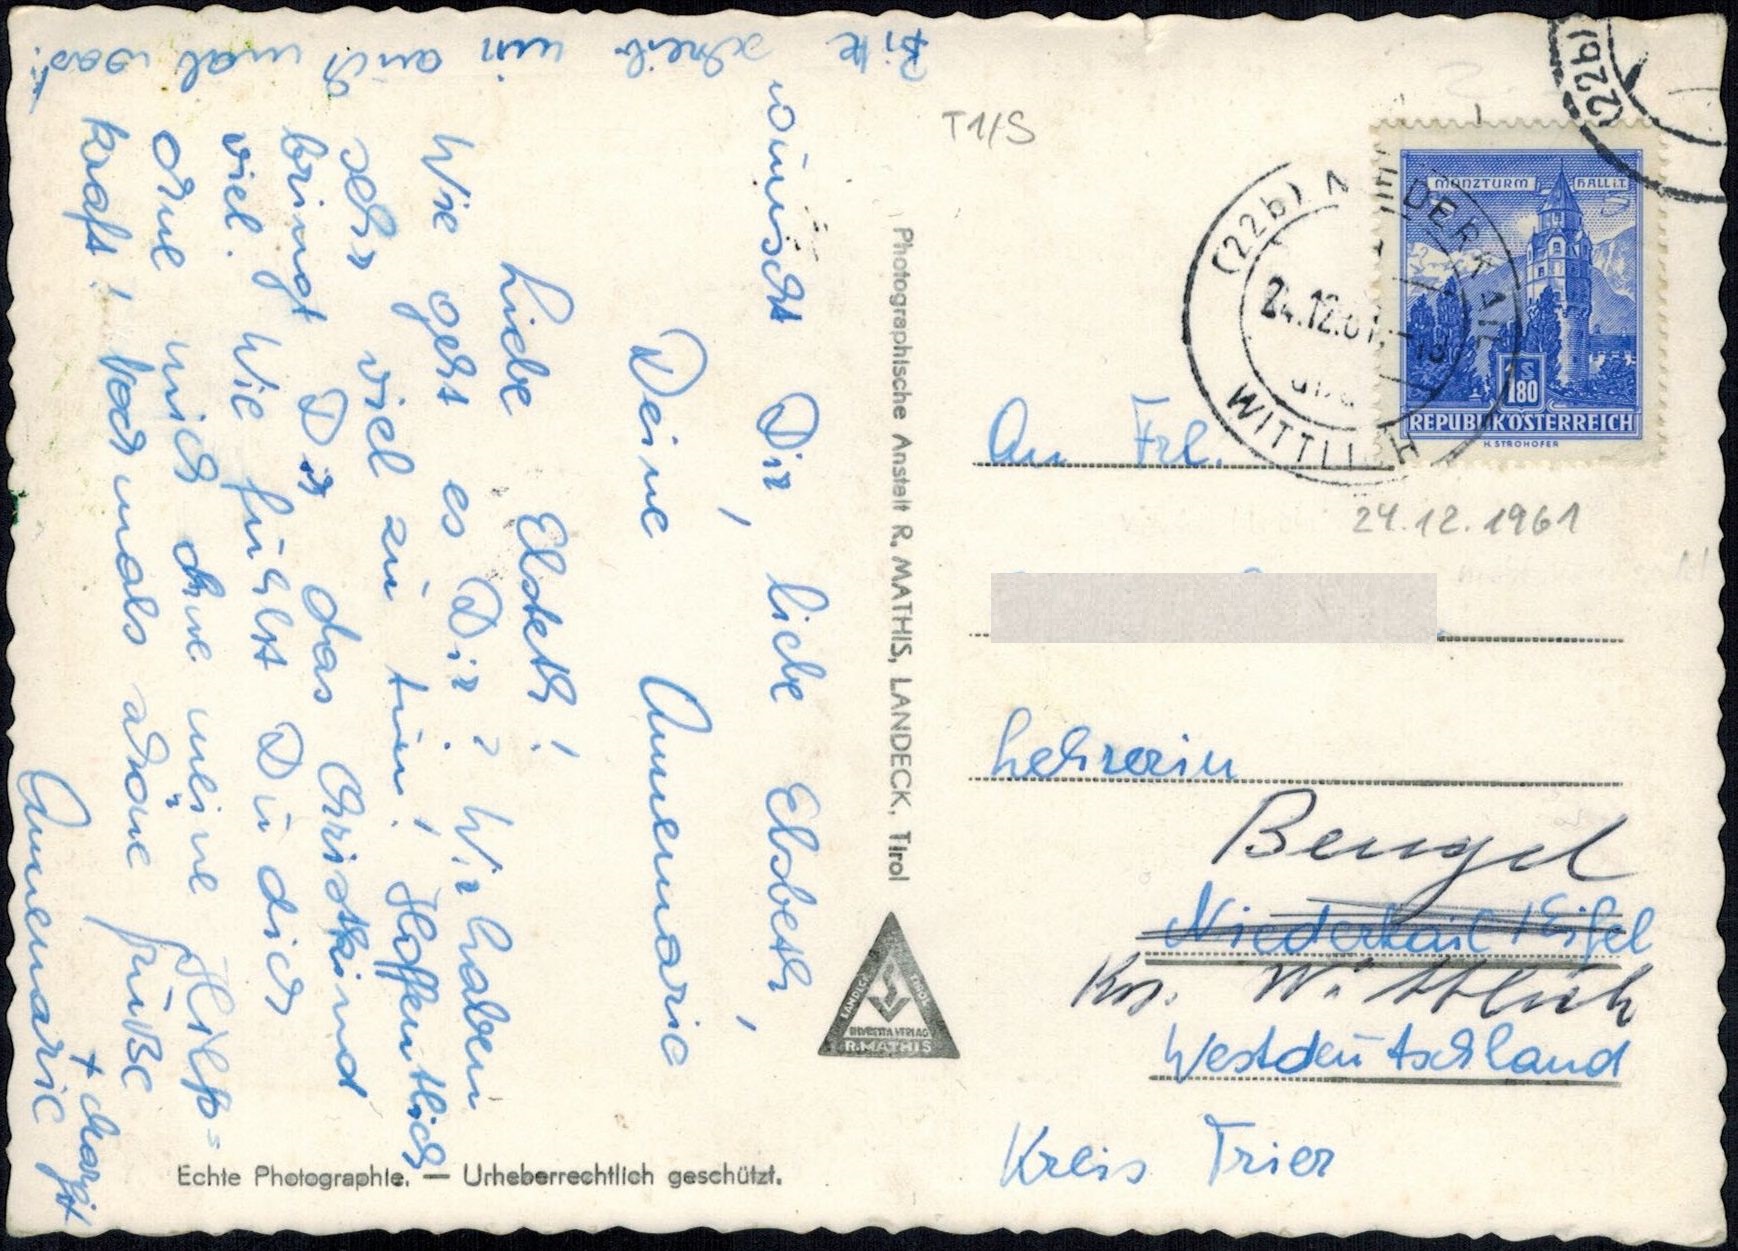 wünscht Dir, liebe Elsbeth,
Deine Annemarie
Liebe Elsbeth!
Wie geht es Dir? Wir haben
sehr viel zu tun! Hoffentlich
bringt Dir das Christkind
viel. Wie fühlst Du dich
ohne mich ohne meine Hilfs=
kraft! Nochmals schöne Grüße
Annemarie
+ Margit
Bitte schreib mir auch mal was!
Photographische Anstalt R. MATHIS, LANDECK, Tirol
LANDECK TIROL
R. MATHIS
Echte Photographie. — Urheberrechtlich geschützt.
T1/S
(22b)
(22b) NIEDERKAIL
24.12.61.-18
WITTLICH
MÜNZTURM HALL i.T.
S 1.80
REPUBLIK ÖSTERREICH
H. STROHOFER
An Frl.
24.12.1961
Lehrerin
Bengel
Niederkail / Eifel
Krs. Wittlich
Westdeutschland
Kreis Trier